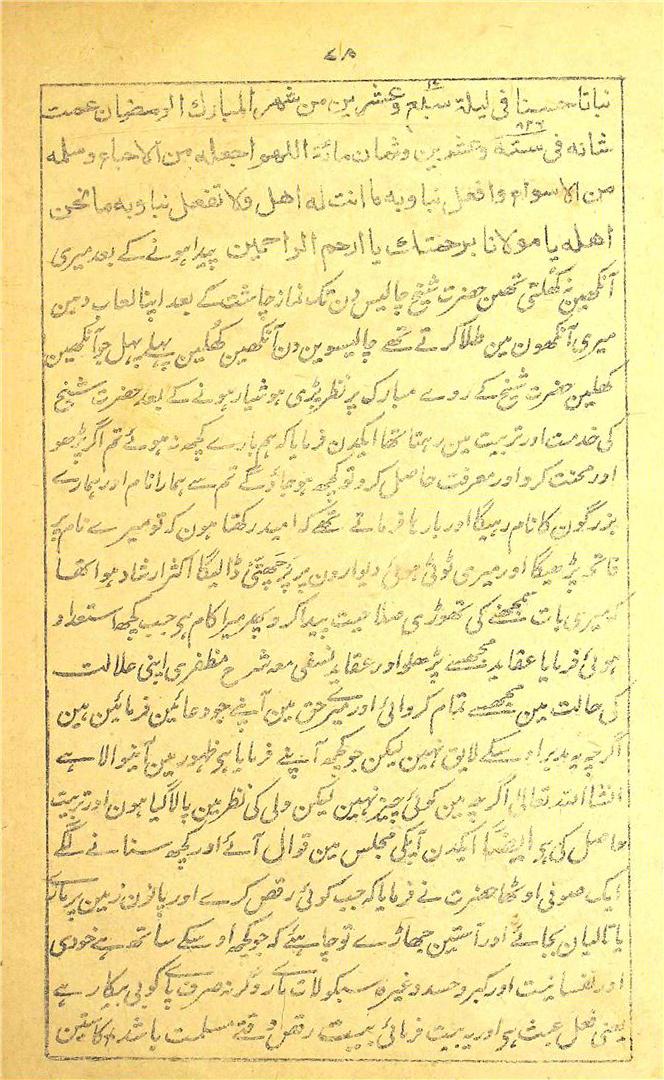 ۷۸
نباتا حسنا فی لیلۃ سبع و عشرین من شهر المبارک الرمضان عمت
شانه فی سنة و عشرین و ثمان مائة اللهم اجعله من الاحباء و سلمه
من الاسواء و افعل بنا و به ما انت له اهل و لا تفعل بنا و به ما نحن
اهله یا مولانا برحمتک یا ارحم الراحمین پیدا ہونے کے بعد میری
آنکھین نہ کھلتی تھین حضرت شیخ چالیس دن تک نماز چاشت کے بعد اپنا لعاب دہن
میری آنکھون مین طلا کرتے تھے چالیسوین دن آنکھین کھلین پہلے پہل جو آنکھین
کھلین حضرت شیخ کے روے مبارک پر نظر پڑی ہوشیار ہونے کے بعد حضرت شیخ
کی خدمت اور تربیت مین رہتا تھا ایکدن فرمایا کہ ہم بارے کچھ نہ ہوئے تم اگر پڑھو
اور محنت کرو اور معرفت حاصل کرو تو کچھ ہو جاؤگے تم سے ہمارا نام اور ہمارے
بزرگون کا نام رہیگا اور بارہا فرماتے تھے کہ امید رکھتا ہون کہ تو میرے نام پر
فاتحہ پڑھیگا اور میری ٹوٹی ہوئی دیوارون پر چھپتی ڈالیگا اکثر ارشاد ہوا تھا
کہ میری بات سمجھنے کی تھوڑی صلاحیت پیدا کر و پھر میرا کام ہی جب کچھ استعداد
ہوئی فرمایا عقاید مجھسے پڑھلو اور عقاید نسفی معہ شرح مظفری اپنی علالت
کی حالت مین مجھسے تمام کروائی اور میرے حق مین آپنے جو دعائین فرمائین ہین
اگرچہ یہ بدیر اوسکے لایق نہین لیکن جو کچھ آپنے فرمایا ہی ظہور مین آنیوالا ہے
انشاء اللہ تعالی اگرچہ مین کوئی چیز نہین لیکن ولی کی نظر مین پالا گیا ہون اور تربیت
حاصل کی ہو ایضاً ایکدن آپکی مجلس مین قوال آئے اور کچھ سنانے لگے
ایک صوفی اوٹھا حضرت نے فرمایا کہ جب کوئی رقص کرے اور پاؤن زمین پر مارے
یا تالیان بجائے اور آستین جھاڑے تو چاہئے کہ جو کچھ اوسکے ساتھ ہے خودی
اور نفسانیت اور کبر و حسد وغیرہ سبکو لات مارے ورنہ صرف پا کوبی بیکار ہے
یعنی فعل عبث ہو اور یہ بیت فرمائی بیت رقص وقتے مسلمت باشد کاستین